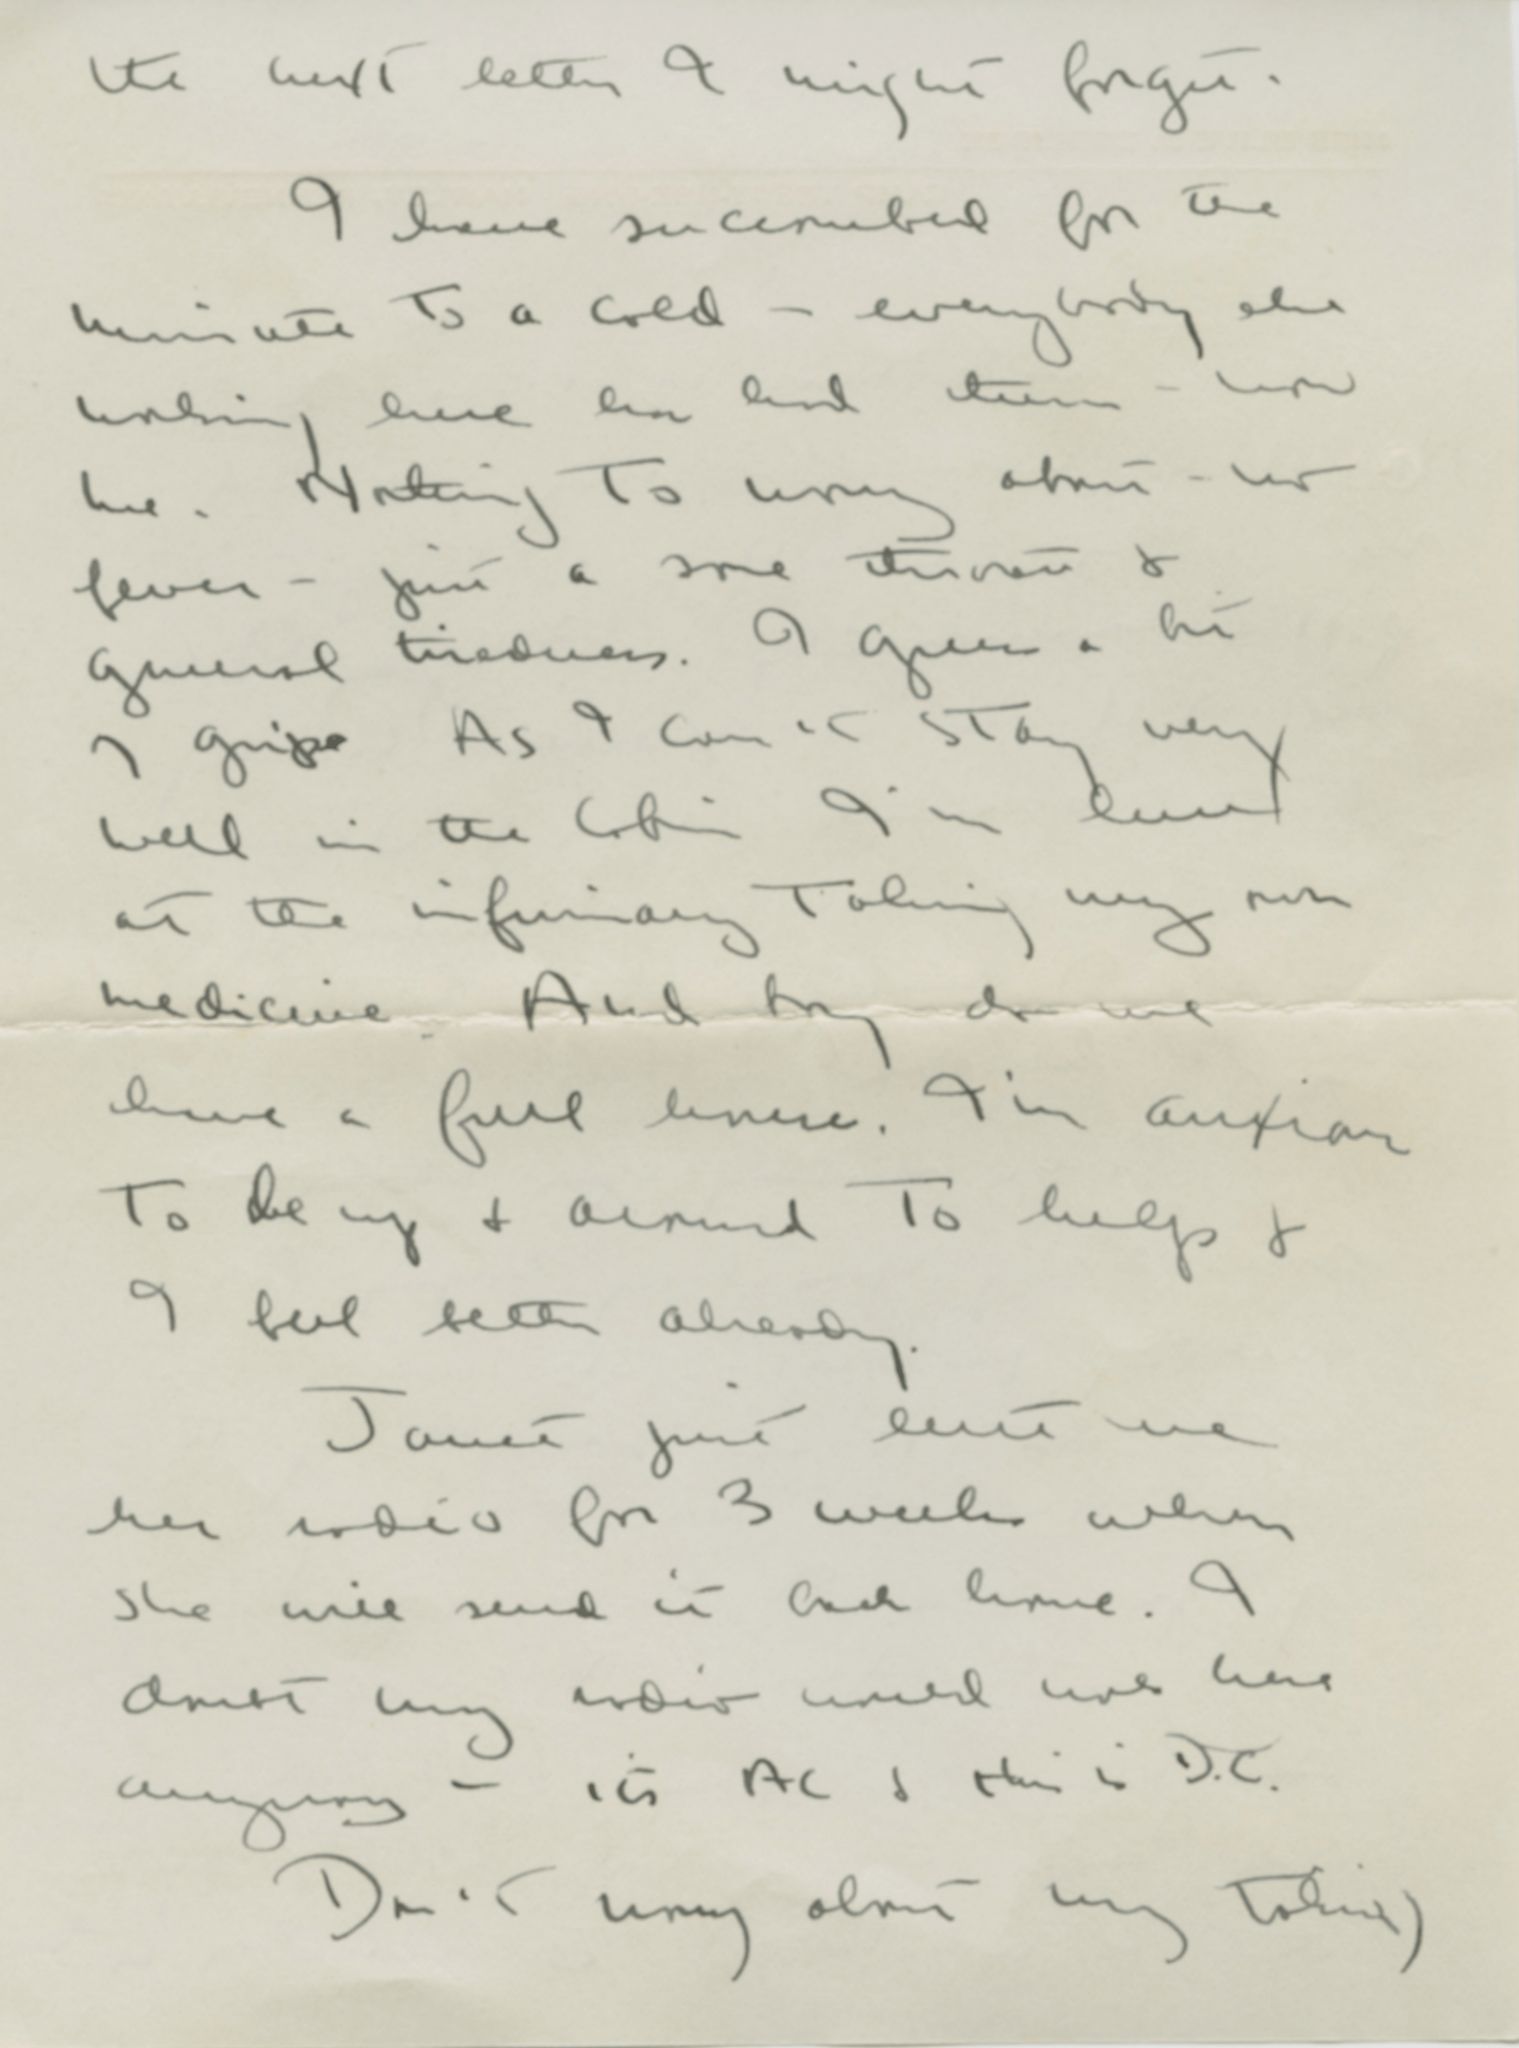 the next letter I might forget.
I have succumbed for the
minute to a cold – everybody else
working here has had them – now
me. Nothing to worry about – no
fever – just a sore throat &
general tiredness. I guess a bit
of grippe As I can't stay very
well in the cabin I'm here
at the infirmary taking my own
medicine. And boy do we
have a full house. I'm anxious
to be up & around to help &
I feel better already.
Janet just lent me
her radio for 3 weeks when
she will send it back home. I
doubt my radio would work here
anyway – its AC & this is D.C.
Don't worry about my taking